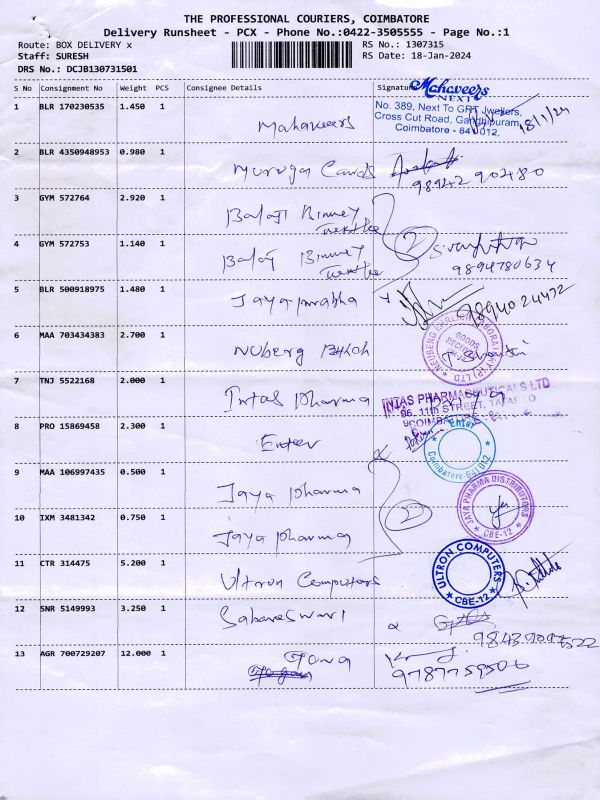 THE PROFESSIONAL COURIERS, COIMBATORE
Delivery Runsheet - PCX - Phone No.:0422-3505555 - Page No.:1
Route: BOX DELIVERY x
Staff: SURESH
DRS No.: DCJB130731501
RS No.: 1307315
RS Date: 18-Jan-2024
S No Consignment No Weight PCS Consignee Details Signature
Mahaveers
NEXT
No. 389, Next To GRT Jwellers,
Cross Cut Road, Gandhipuram,
Coimbatore - 641 012.
18/1/24
1 BLR 170230535 1.450 1 Mahaveers
2 BLR 4350948953 0.980 1 Muruga Cards
98942 90480
3 GYM 572764 2.920 1 Balaji Binney
4 GYM 572753 1.140 1 Balaj Binney
2
9894780634
5 BLR 500918975 1.480 1 Jayaprabha
9894024472
6 MAA 703434383 2.700 1 Nuberg
GOODS RECEIVED
7 TNJ 5522168 2.000 1 Intas pharma
INTAS PHARMACEUTICALS LTD
96, 11th STREET, TATABAD
COIMBATORE
8 PRO 15869458 2.300 1 Enter
Enter
Coimbatore-641 012
9 MAA 106997435 0.500 1 Jaya pharma
JAYA PHARMA DISTRIBUTORS
CBE-12
10 IXM 3481342 0.750 1 Jaya pharma
2
11 CTR 314475 5.200 1 Ultron Computers
ULTRON COMPUTERS
CBE-12
12 SNR 5149993 3.250 1 Sabareswari
13 AGR 700729207 12.000 1
9787759506